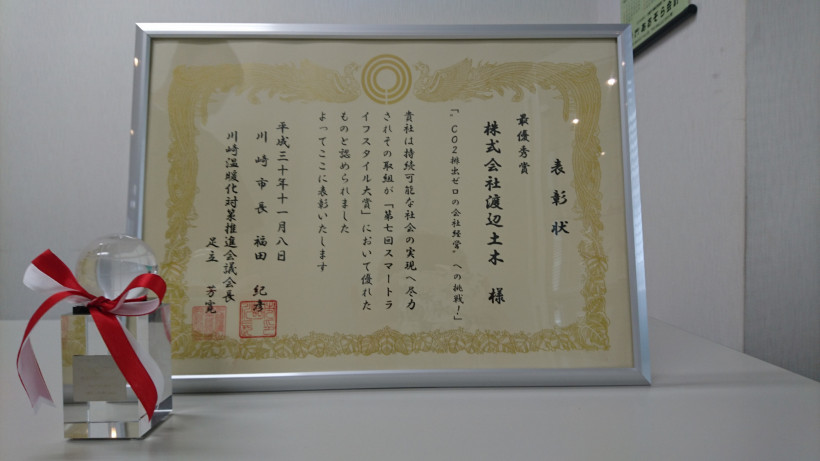 表彰状
最優秀賞
株式会社渡辺土木 様
「“CO2排出ゼロの会社経営”への挑戦!」
貴社は持続可能な社会の実現へ尽力
されその取組が「第七回スマートラ
イフスタイル大賞」において優れた
ものと認められました
よってここに表彰いたします
平成三十年十一月八日
川崎市長 福田 紀彦
川崎温暖化対策推進会議会長
足立 芳寛